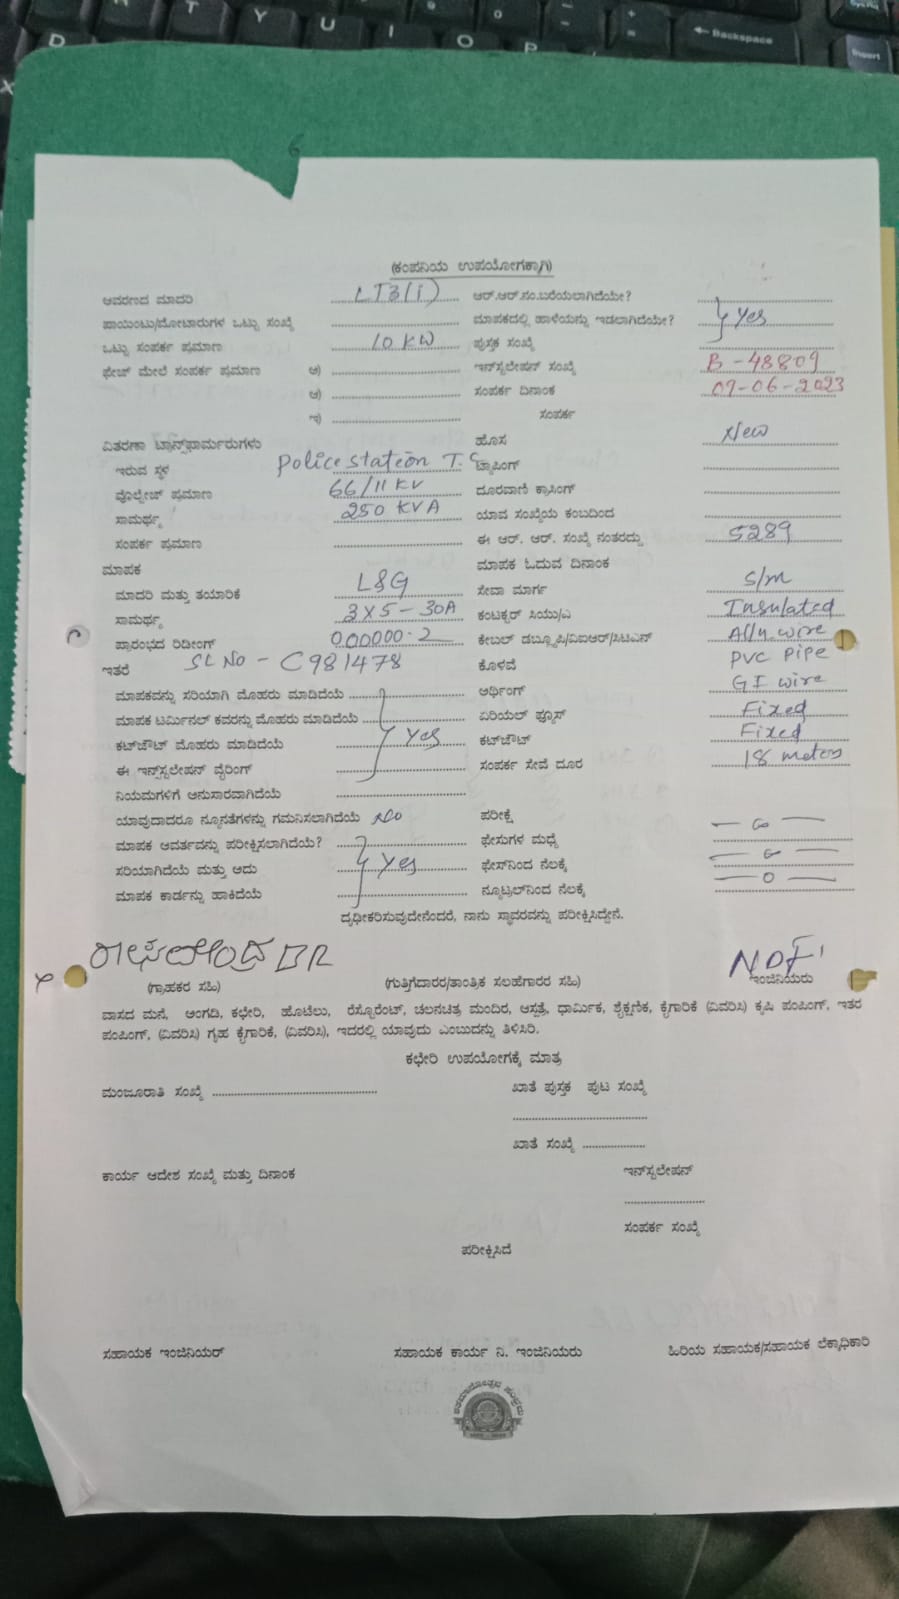 (ಕಂಪನಿಯ ಉಪಯೋಗಕ್ಕಾಗಿ)
ಆವರಣದ ಮಾದರಿ LT3(i) ಆರ್.ಆರ್.ನಂ.ಬರೆಯಲಾಗಿದೆಯೇ?
ಪಾಯಿಂಟು/ಮೋಟಾರುಗಳ ಒಟ್ಟು ಸಂಖ್ಯೆ ಮಾಪಕದಲ್ಲಿ ಹಾಳೆಯನ್ನು ಇಡಲಾಗಿದೆಯೇ? Yes
ಒಟ್ಟು ಸಂಪರ್ಕ ಪ್ರಮಾಣ 10 KW ಪುಸ್ತಕ ಸಂಖ್ಯೆ
ಫೇಜ್ ಮೇಲೆ ಸಂಪರ್ಕ ಪ್ರಮಾಣ ಅ) ಇನ್‌ಸ್ಟಲೇಷನ್ ಸಂಖ್ಯೆ B-48809
ಆ) ಸಂಪರ್ಕ ದಿನಾಂಕ 07-06-2023
ಇ) ಸಂಪರ್ಕ
ವಿತರಣಾ ಟ್ರಾನ್ಸ್‌ಫಾರ್ಮರುಗಳು ಹೊಸ New
ಇರುವ ಸ್ಥಳ Police station T.C ಟ್ಯಾಪಿಂಗ್
ವೋಲ್ಟೇಜ್ ಪ್ರಮಾಣ 66/11 KV ದೂರವಾಣಿ ಕ್ರಾಸಿಂಗ್
ಸಾಮರ್ಥ್ಯ 250 KVA ಯಾವ ಸಂಖ್ಯೆಯ ಕಂಬದಿಂದ
ಸಂಪರ್ಕ ಪ್ರಮಾಣ ಈ ಆರ್. ಆರ್. ಸಂಖ್ಯೆ ನಂತರದ್ದು 5289
ಮಾಪಕ ಮಾಪಕ ಓದುವ ದಿನಾಂಕ
ಮಾದರಿ ಮತ್ತು ತಯಾರಿಕೆ L&G ಸೇವಾ ಮಾರ್ಗ S/m
ಸಾಮರ್ಥ್ಯ 3X5-30A ಕಂಟಕ್ಟರ್ ಸಿಯು/ಎ Insulated
ಪ್ರಾರಂಭದ ರಿಡೀಂಗ್ 000000.2 ಕೇಬಲ್ ಡಬ್ಲ್ಯೂಪಿ/ವಿಐಆರ್/ಸಿಟಿಎಸ್ Allu. wire
ಇತರೆ SL No - C981478 ಕೊಳವೆ PVC Pipe
ಮಾಪಕವನ್ನು ಸರಿಯಾಗಿ ಮೊಹರು ಮಾಡಿದೆಯೆ ಅರ್ಥಿಂಗ್ GI wire
ಮಾಪಕ ಟರ್ಮಿನಲ್ ಕವರನ್ನು ಮೊಹರು ಮಾಡಿದೆಯೆ ಏರಿಯಲ್ ಫ್ಯೂಸ್ Fixed
ಕಟ್‌ಔಟ್ ಮೊಹರು ಮಾಡಿದೆಯೆ Yes ಕಟ್‌ಔಟ್ Fixed
ಈ ಇನ್‌ಸ್ಟಲೇಷನ್ ವೈರಿಂಗ್ ಸಂಪರ್ಕ ಸೇವೆ ದೂರ 18 meters
ನಿಯಮಗಳಿಗೆ ಅನುಸಾರವಾಗಿದೆಯೆ
ಯಾವುದಾದರೂ ನ್ಯೂನತೆಗಳನ್ನು ಗಮನಿಸಲಾಗಿದೆಯೆ NO ಪರೀಕ್ಷೆ
ಮಾಪಕ ಆವರ್ತವನ್ನು ಪರೀಕ್ಷಿಸಲಾಗಿದೆಯೆ? ಫೇಸುಗಳ ಮಧ್ಯೆ
ಸರಿಯಾಗಿದೆಯೆ ಮತ್ತು ಅದು Yes ಫೇಸ್‌ನಿಂದ ನೆಲಕ್ಕೆ
ಮಾಪಕ ಕಾರ್ಡನ್ನು ಹಾಕಿದೆಯೆ ನ್ಯೂಟ್ರಲ್‌ನಿಂದ ನೆಲಕ್ಕೆ
ದೃಢೀಕರಿಸುವುದೇನೆಂದರೆ, ನಾನು ಸ್ಥಾವರವನ್ನು ಪರೀಕ್ಷಿಸಿದ್ದೇನೆ.
(ಗ್ರಾಹಕರ ಸಹಿ) (ಗುತ್ತಿಗೆದಾರರ/ತಾಂತ್ರಿಕ ಸಲಹೆಗಾರರ ಸಹಿ) ಇಂಜಿನಿಯರು
ವಾಸದ ಮನೆ, ಅಂಗಡಿ, ಕಛೇರಿ, ಹೊಟೆಲು, ರೆಸ್ಟೋರೆಂಟ್, ಚಲನಚಿತ್ರ ಮಂದಿರ, ಆಸ್ಪತ್ರೆ, ಧಾರ್ಮಿಕ, ಶೈಕ್ಷಣಿಕ, ಕೈಗಾರಿಕೆ (ವಿವರಿಸಿ) ಕೃಷಿ ಪಂಪಿಂಗ್, ಇತರ
ಪಂಪಿಂಗ್, (ವಿವರಿಸಿ) ಗೃಹ ಕೈಗಾರಿಕೆ, (ವಿವರಿಸಿ), ಇದರಲ್ಲಿ ಯಾವುದು ಎಂಬುದನ್ನು ತಿಳಿಸಿರಿ.
ಕಛೇರಿ ಉಪಯೋಗಕ್ಕೆ ಮಾತ್ರ
ಮಂಜೂರಾತಿ ಸಂಖ್ಯೆ ಖಾತೆ ಪುಸ್ತಕ ಪುಟ ಸಂಖ್ಯೆ
ಖಾತೆ ಸಂಖ್ಯೆ
ಕಾರ್ಯ ಆದೇಶ ಸಂಖ್ಯೆ ಮತ್ತು ದಿನಾಂಕ ಇನ್‌ಸ್ಟಲೇಷನ್
ಸಂಪರ್ಕ ಸಂಖ್ಯೆ
ಪರೀಕ್ಷಿಸಿದೆ
ಸಹಾಯಕ ಇಂಜಿನಿಯರ್ ಸಹಾಯಕ ಕಾರ್ಯ ನಿ. ಇಂಜಿನಿಯರು ಹಿರಿಯ ಸಹಾಯಕ/ಸಹಾಯಕ ಲೆಕ್ಕಾಧಿಕಾರಿ